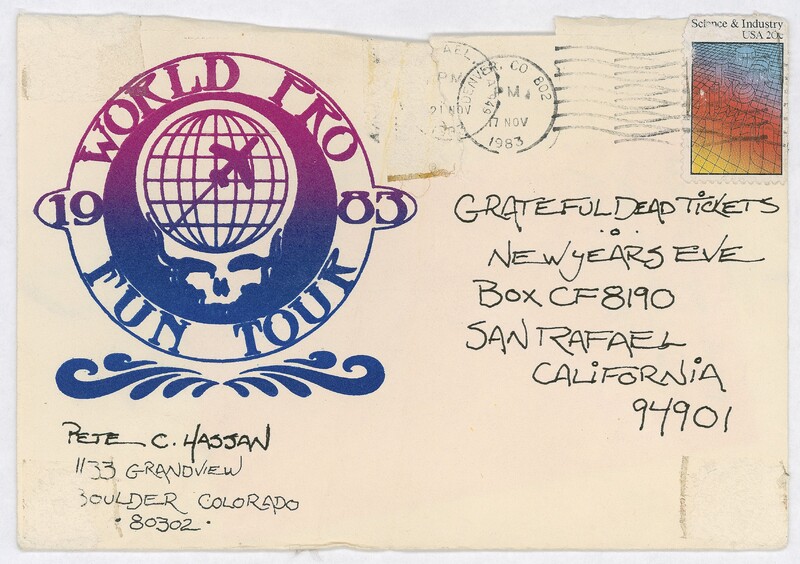 WORLD PRO
1983
FUN TOUR
AEL,
PM
21 NOV
DENVER, CO 802
PM
17 NOV
1983
Science & Industry
USA 20c
GRATEFUL DEAD TICKETS
NEW YEARS EVE
BOX CF8190
SAN RAFAEL
CALIFORNIA
94901
PETE C. HASSAN
1133 GRANDVIEW
BOULDER COLORADO
• 80302 •